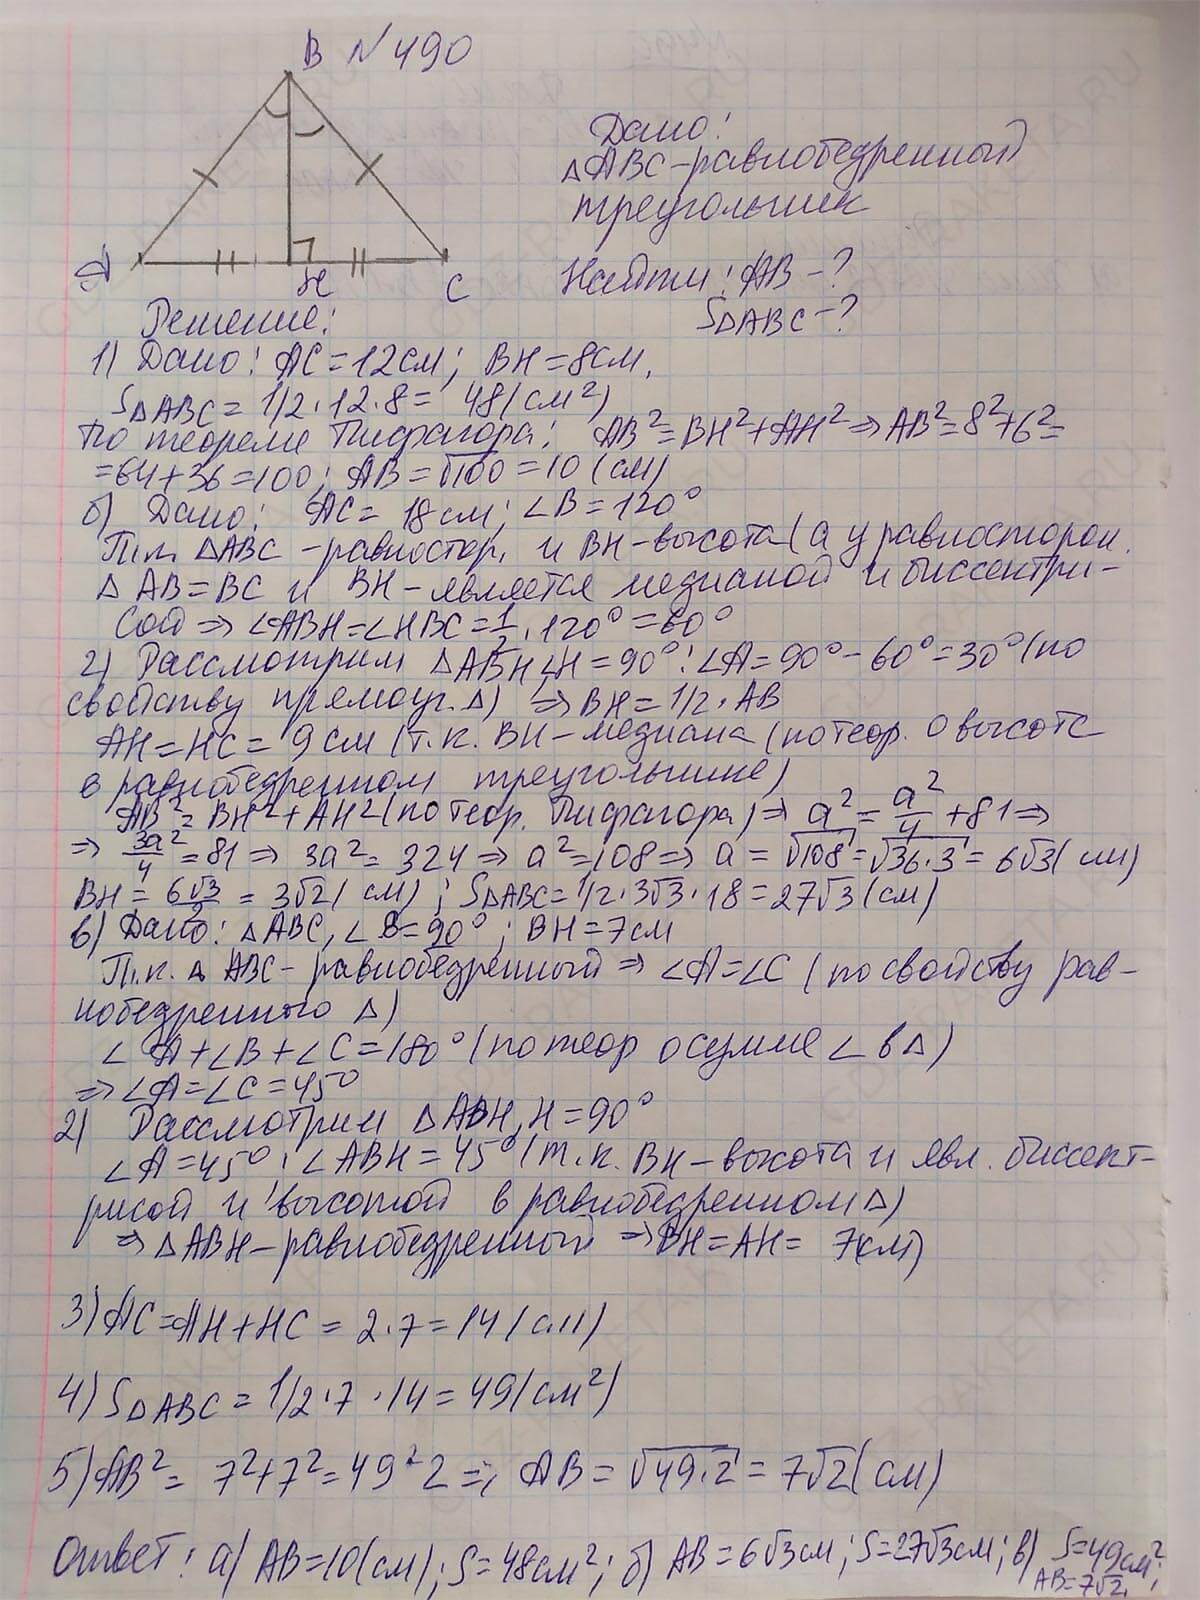 B N490
Дано:
△ABC-равнобедренный
треугольник
A H C
Найти: AB-?
S△ABC-?
Решение:
1) Дано: AC=12см; BH=8см,
S△ABC=1/2·12·8= 48(см²)
По теореме Пифагора: AB²=BH²+AH²⇒AB²=8²+6²=
=64+36=100; AB=√100=10(см)
б) Дано: AC= 18см; ∠B=120°
П.к. △ABC-равностор. и BH-высота (а у равносторон.
△ AB=BC и BH-является медианой и биссектри-
сой ⇒ ∠ABH=∠HBC=1/2·120°=60°
2) Рассмотрим △ABH,∠H=90°:∠A=90°-60°=30°(по
свойству прямоуг.△) ⇒BH=1/2·AB
AH=HC= 9см (т.к. BH-медиана (по теор. о высоте
в равнобедренном треугольнике)
AB²=BH²+AH²(по теор. Пифагора)⇒ a²=a²/4+81⇒
⇒ 3a²/4=81⇒ 3a²=324⇒a²=108⇒ a=√108=√36·3=6√3(см)
BH=6√3/2=3√2(см); S△ABC=1/2·3√3·18=27√3(см)
в) Дано: △ABC,∠B=90°; BH=7см
П.к. △ ABC-равнобедренный⇒ ∠A=∠C (по свойству рав-
нобедренного △)
∠A+∠B+∠C=180°(по теор о сумме ∠ в △)
⇒∠A=∠C=45°
2) Рассмотрим △ABH, H=90°
∠A=45°; ∠ABH=45°(т.к. BH-высота и явл. биссект-
рисой и высотой в равнобедренном △)
⇒△ABH-равнобедренный ⇒BH=AH= 7(см)
3)AC=AH+HC= 2·7=14(см)
4)S△ABC=1/2·7·14=49(см²)
5)AB²= 7²+7²=49·2 =; AB=√49·2=7√2(см)
Ответ: а) AB=10(см); S=48см²; б) AB=6√3см; S=27√3см; в) S=49см²;
AB=7√2,